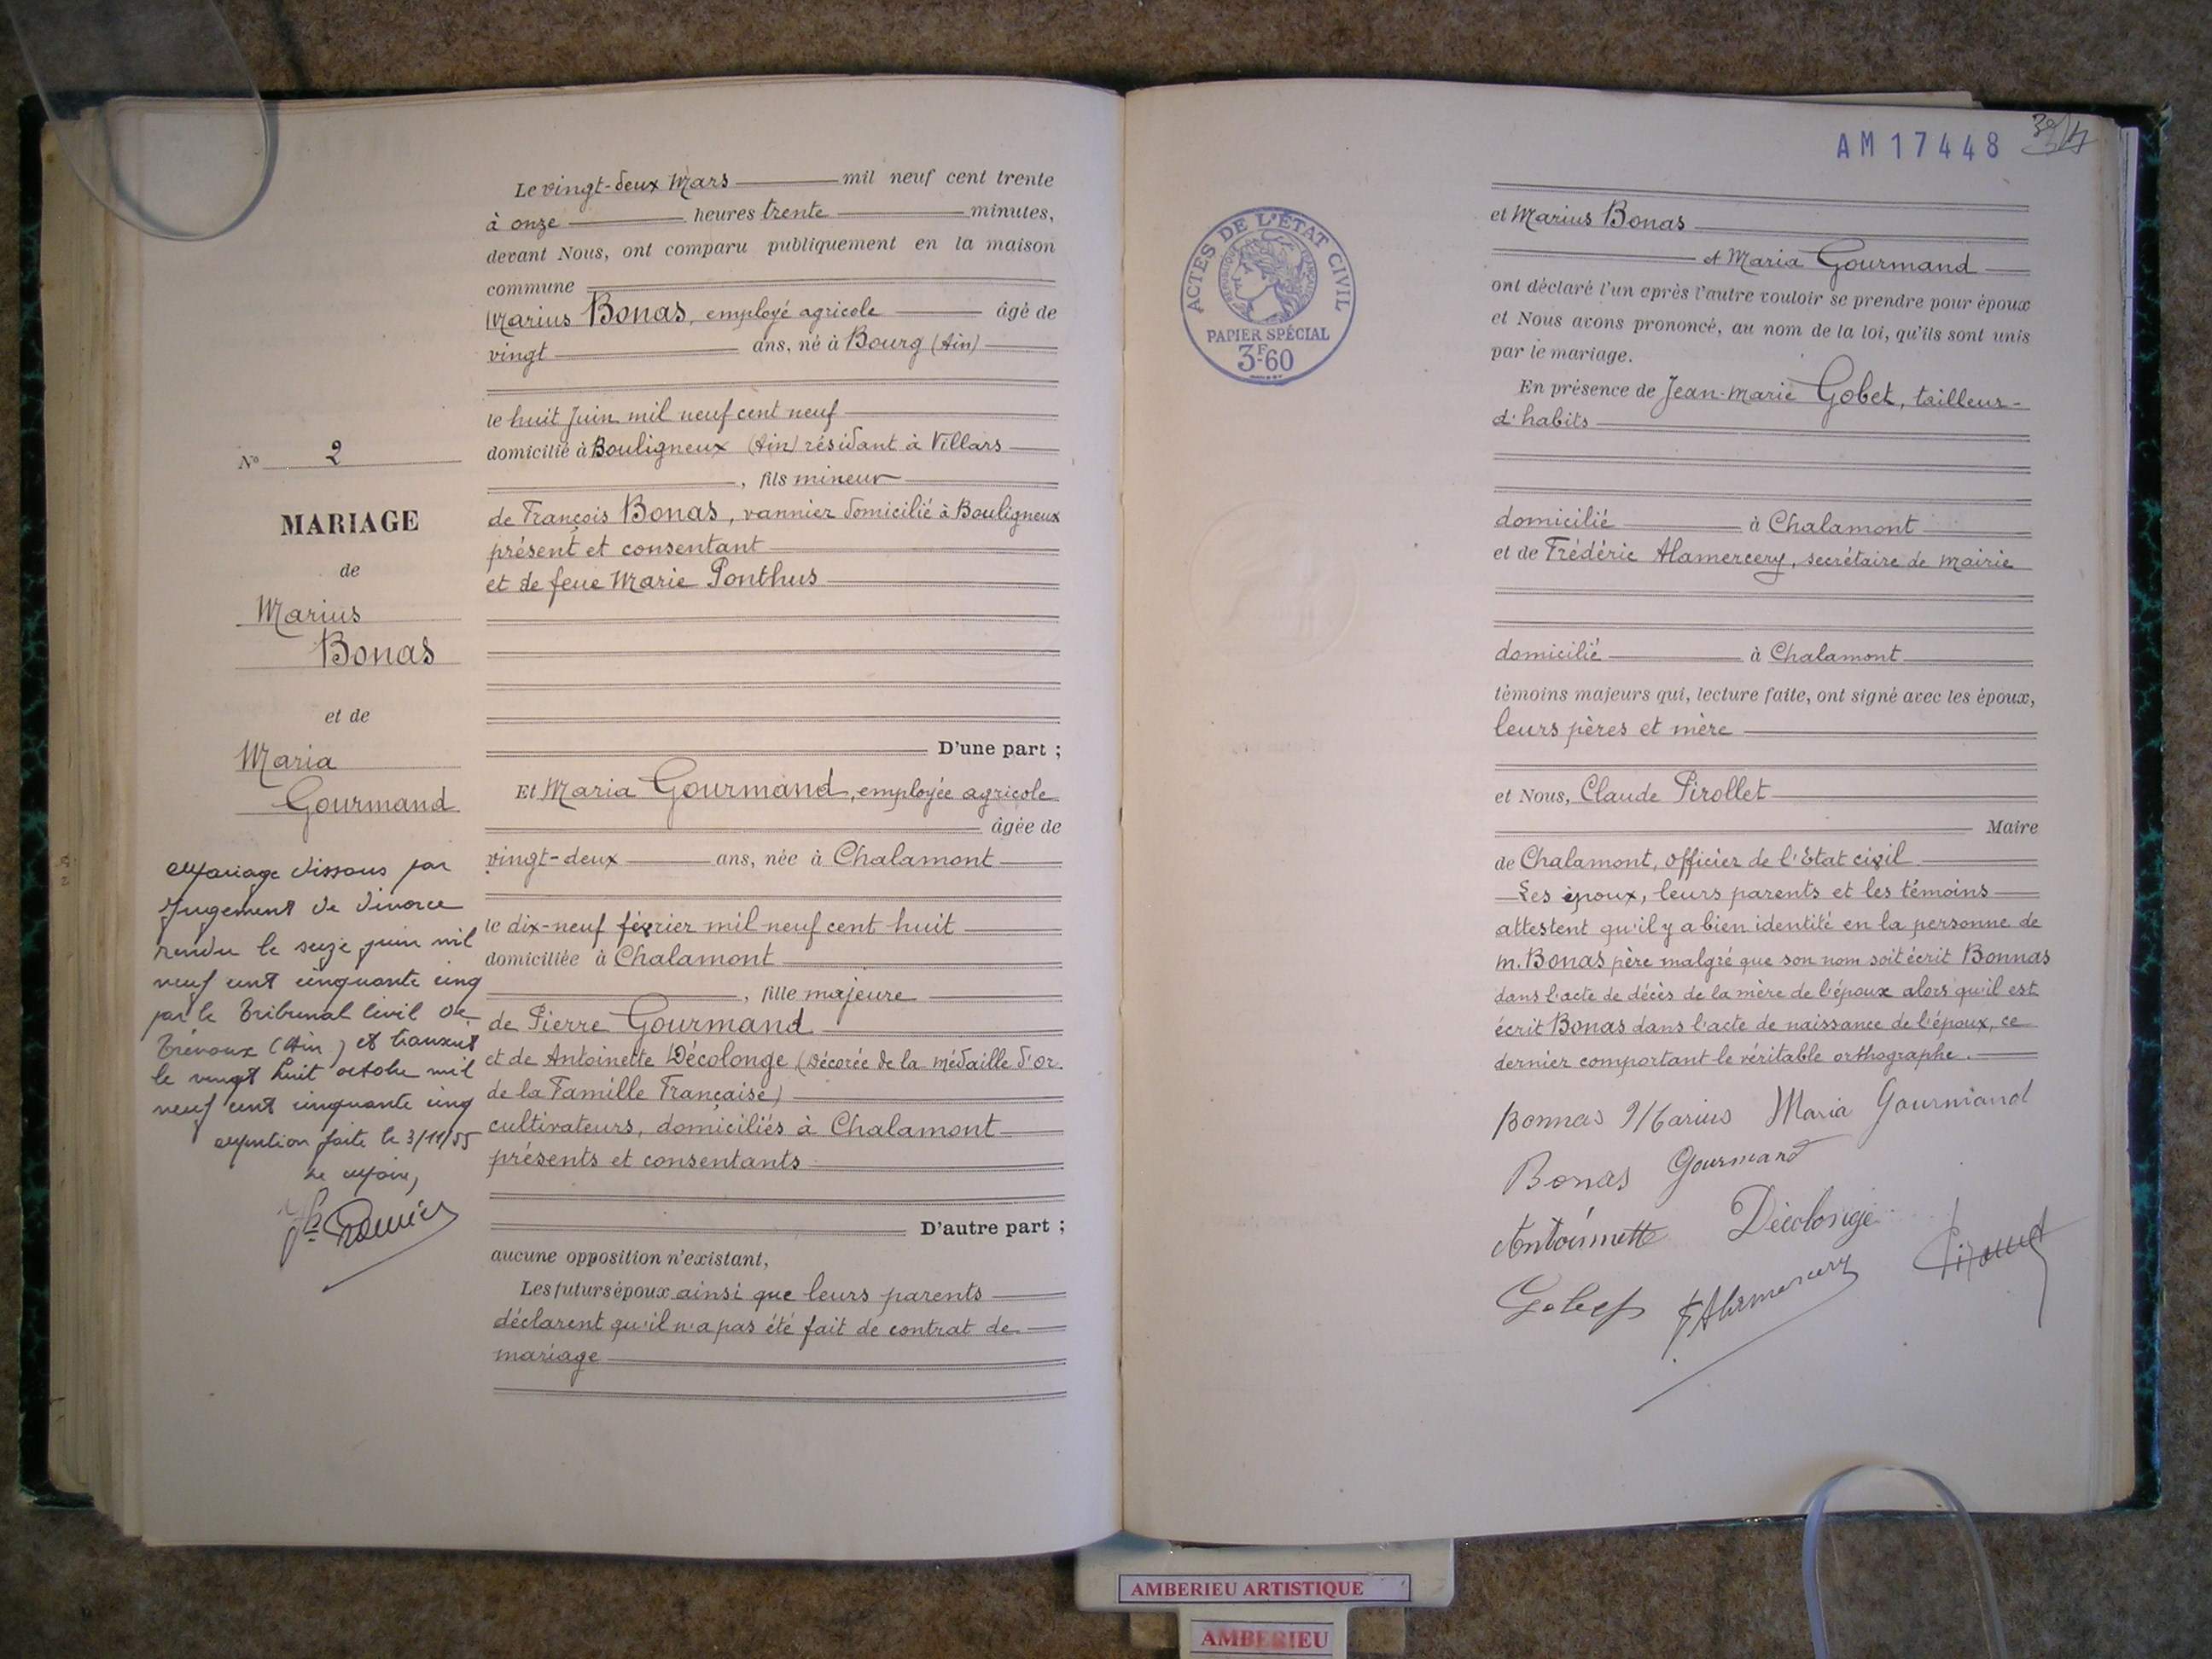 Le vingt-deux Mars mil neuf cent trente
à onze heures trente minutes,
devant Nous, ont comparu publiquement en la maison
commune
Marius Bonas, employé agricole âgé de
vingt ans, né à Bourg (Ain)
le huit Juin mil neuf cent neuf
domicilié à Bouligneux (Ain) résidant à Villars
, fils mineur
de François Bonas, vannier domicilié à Bouligneux
présent et consentant
et de feue Marie Ponthus
D'une part ;
Et Maria Gourmand, employée agricole
âgée de
vingt-deux ans, née à Chalamont
le dix-neuf février mil neuf cent huit
domiciliée à Chalamont
, fille majeure
de Pierre Gourmand
et de Antoinette Décolonge (Décorée de la médaille d'or
de la Famille Française)
cultivateurs, domiciliés à Chalamont
présents et consentants
D'autre part ;
aucune opposition n'existant,
Les futurs époux ainsi que leurs parents
déclarent qu'il n'a pas été fait de contrat de
mariage
N° 2
MARIAGE
de
Marius
Bonas
et de
Maria
Gourmand
Mariage dissous par
Jugement de divorce
rendu le seize juin mil
neuf cent cinquante cinq
par le Tribunal Civil de
Trévoux (Ain) et transcrit
le vingt huit octobre mil
neuf cent cinquante cinq
Mention faite le 3/11/55
Le Maire,
AM 17448
ACTES DE L'ÉTAT CIVIL
RÉPUBLIQUE FRANÇAISE
PAPIER SPÉCIAL
3F60
et Marius Bonas
et Maria Gourmand
ont déclaré l'un après l'autre vouloir se prendre pour époux
et Nous avons prononcé, au nom de la loi, qu'ils sont unis
par le mariage.
En présence de Jean-Marie Gobet, tailleur-
d'habits
domicilié à Chalamont
et de Frédéric Alamercery, secrétaire de Mairie
domicilié à Chalamont
témoins majeurs qui, lecture faite, ont signé avec les époux,
leurs pères et mère
et Nous, Claude Pirollet
Maire
de Chalamont, officier de l'Etat civil
Les époux, leurs parents et les témoins
attestent qu'il y a bien identité en la personne de
m. Bonas père malgré que son nom soit écrit Bonnas
dans l'acte de décès de la mère de l'époux alors qu'il est
écrit Bonas dans l'acte de naissance de l'époux, ce
dernier comportant le véritable orthographe.
Bonnas Marius Maria Gourmand
Bonas Gourmand
Antoinette Décolonge
Gobet F Alamercery Pirollet
AMBERIEU ARTISTIQUE
AMBERIEU